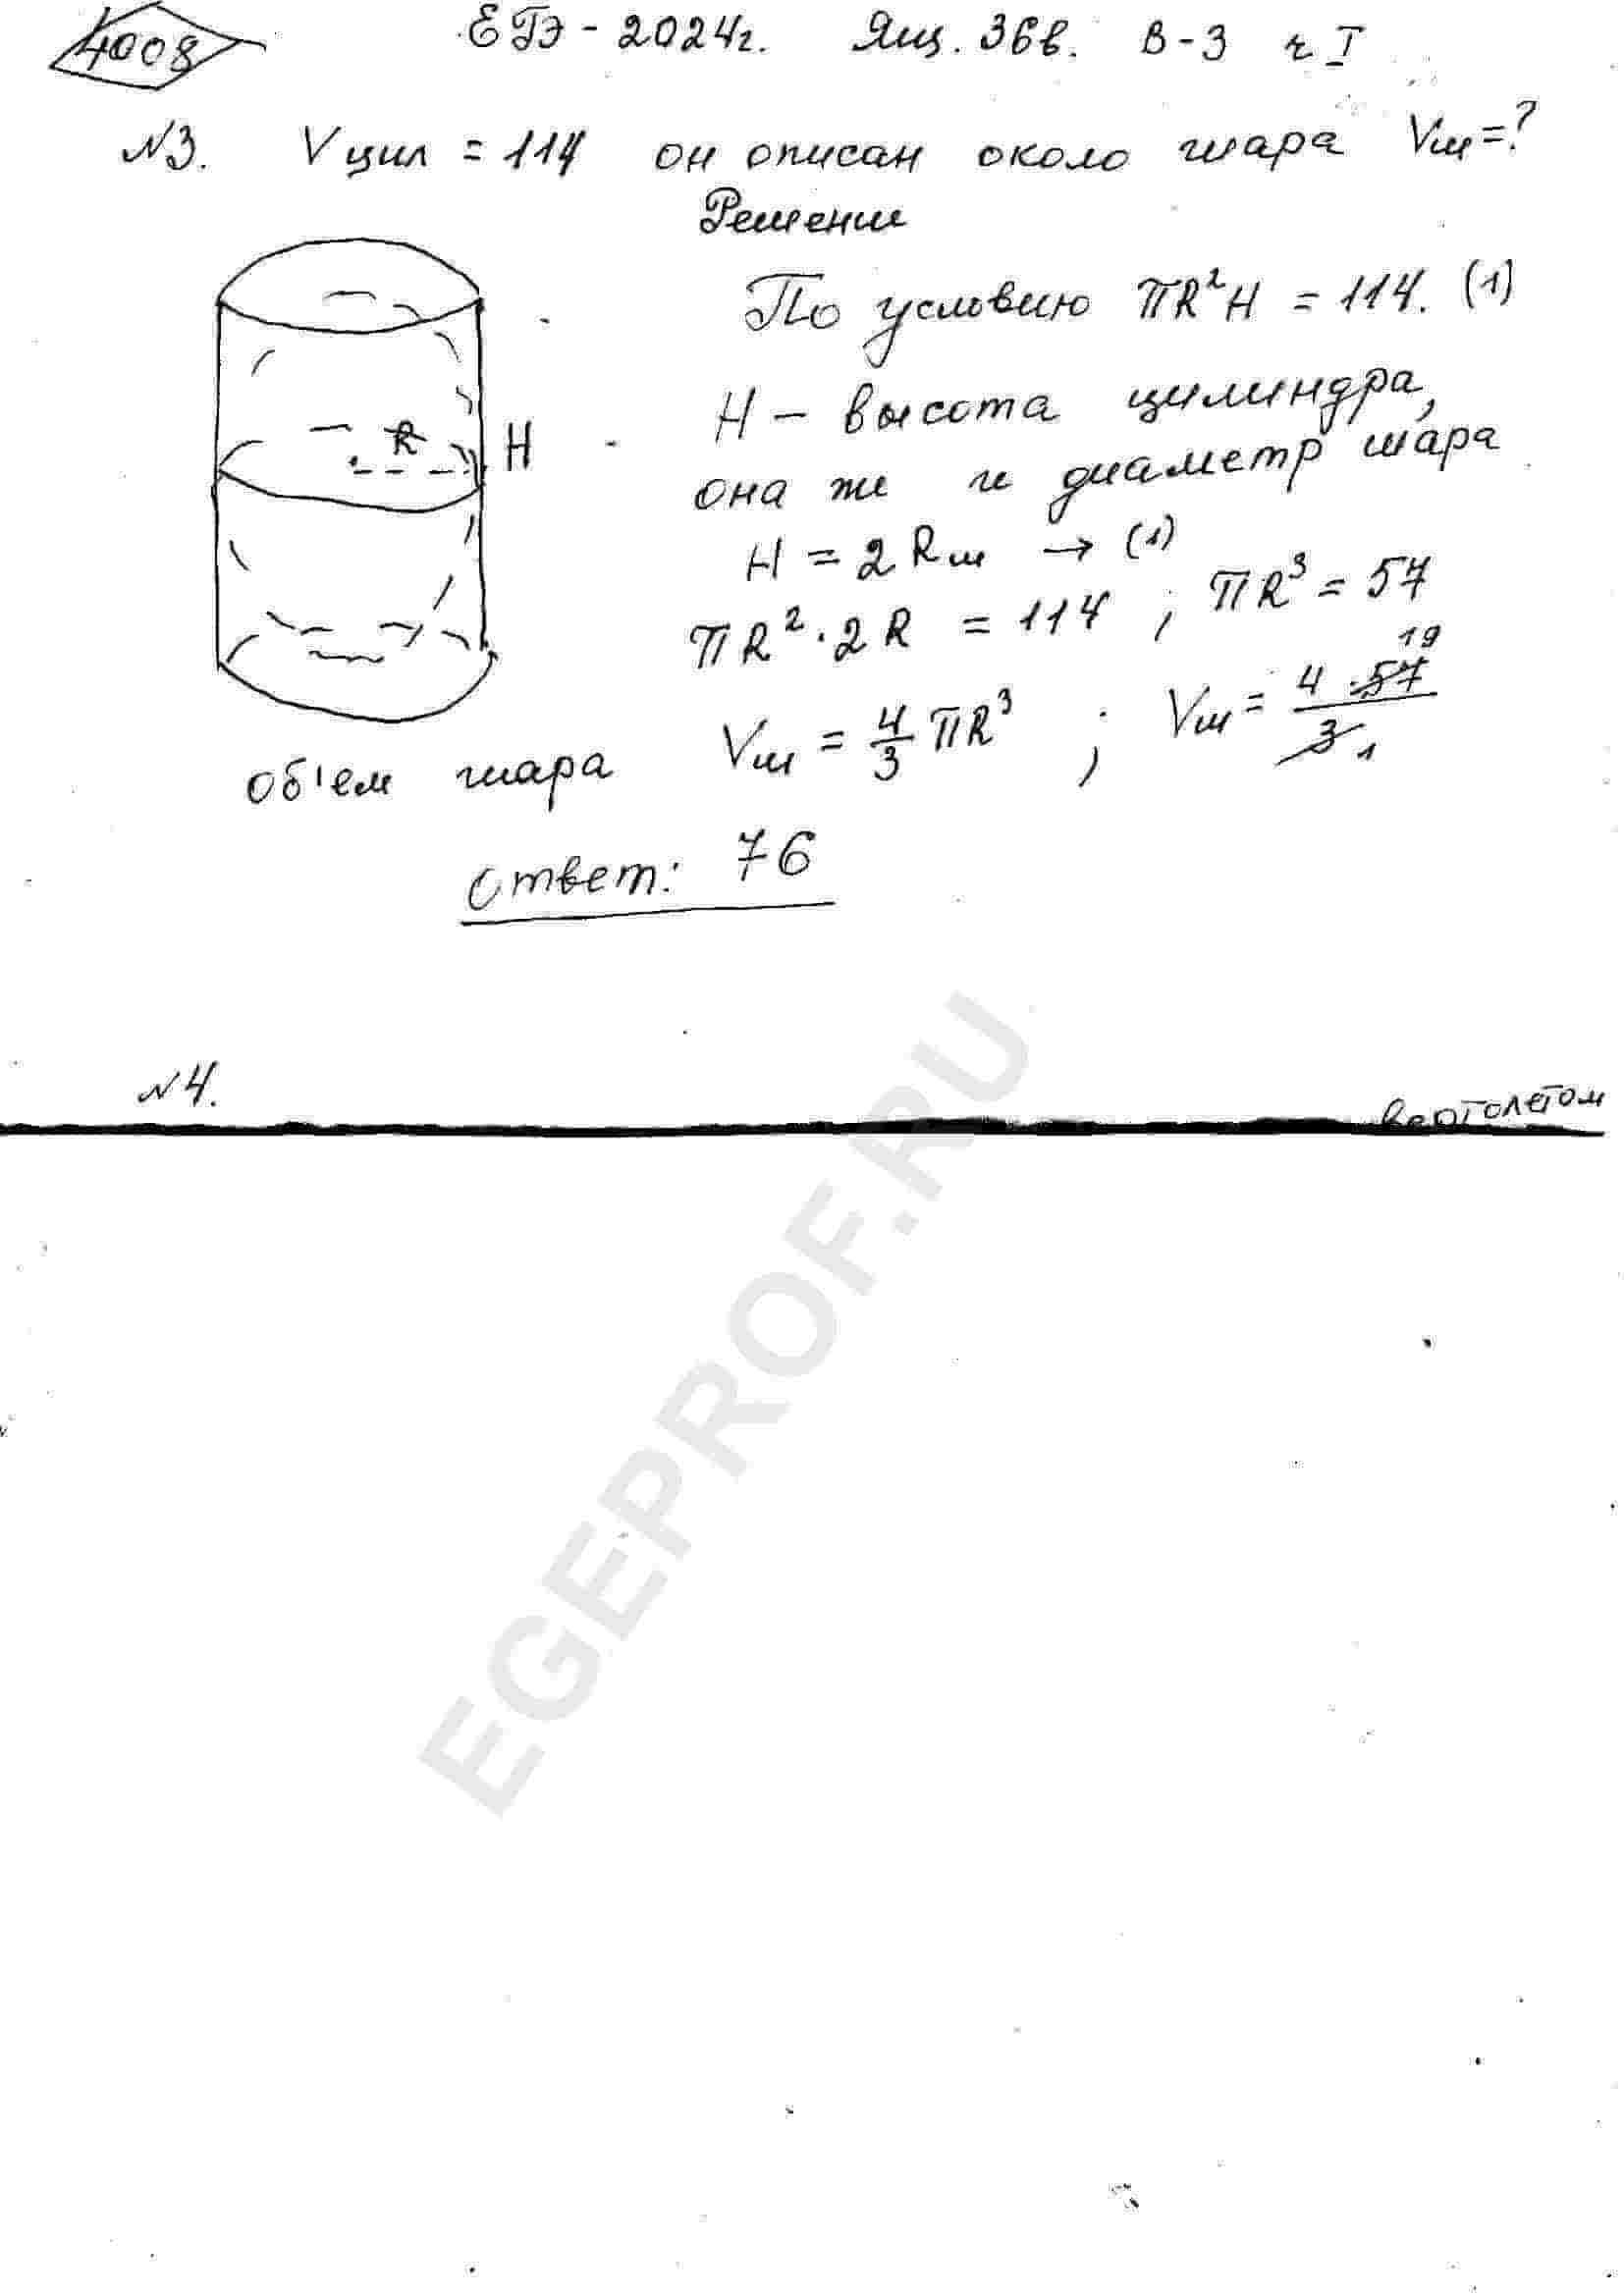 4008
ЕГЭ - 2024г. Ящ. 36в. В-3 ч I
№3. Vцил = 114 он описан около шара Vш=?
Решение
По условию πR²H = 114. (1)
H – высота цилиндра,
она же и диаметр шара
R H
H = 2Rш → (1)
πR²·2R = 114 ; πR³ = 57
объем шара Vш = 4/3 πR³ ; Vш = 4·57/3 19 1
Ответ: 76
№4.
вертолетом
EGEPROF.RU